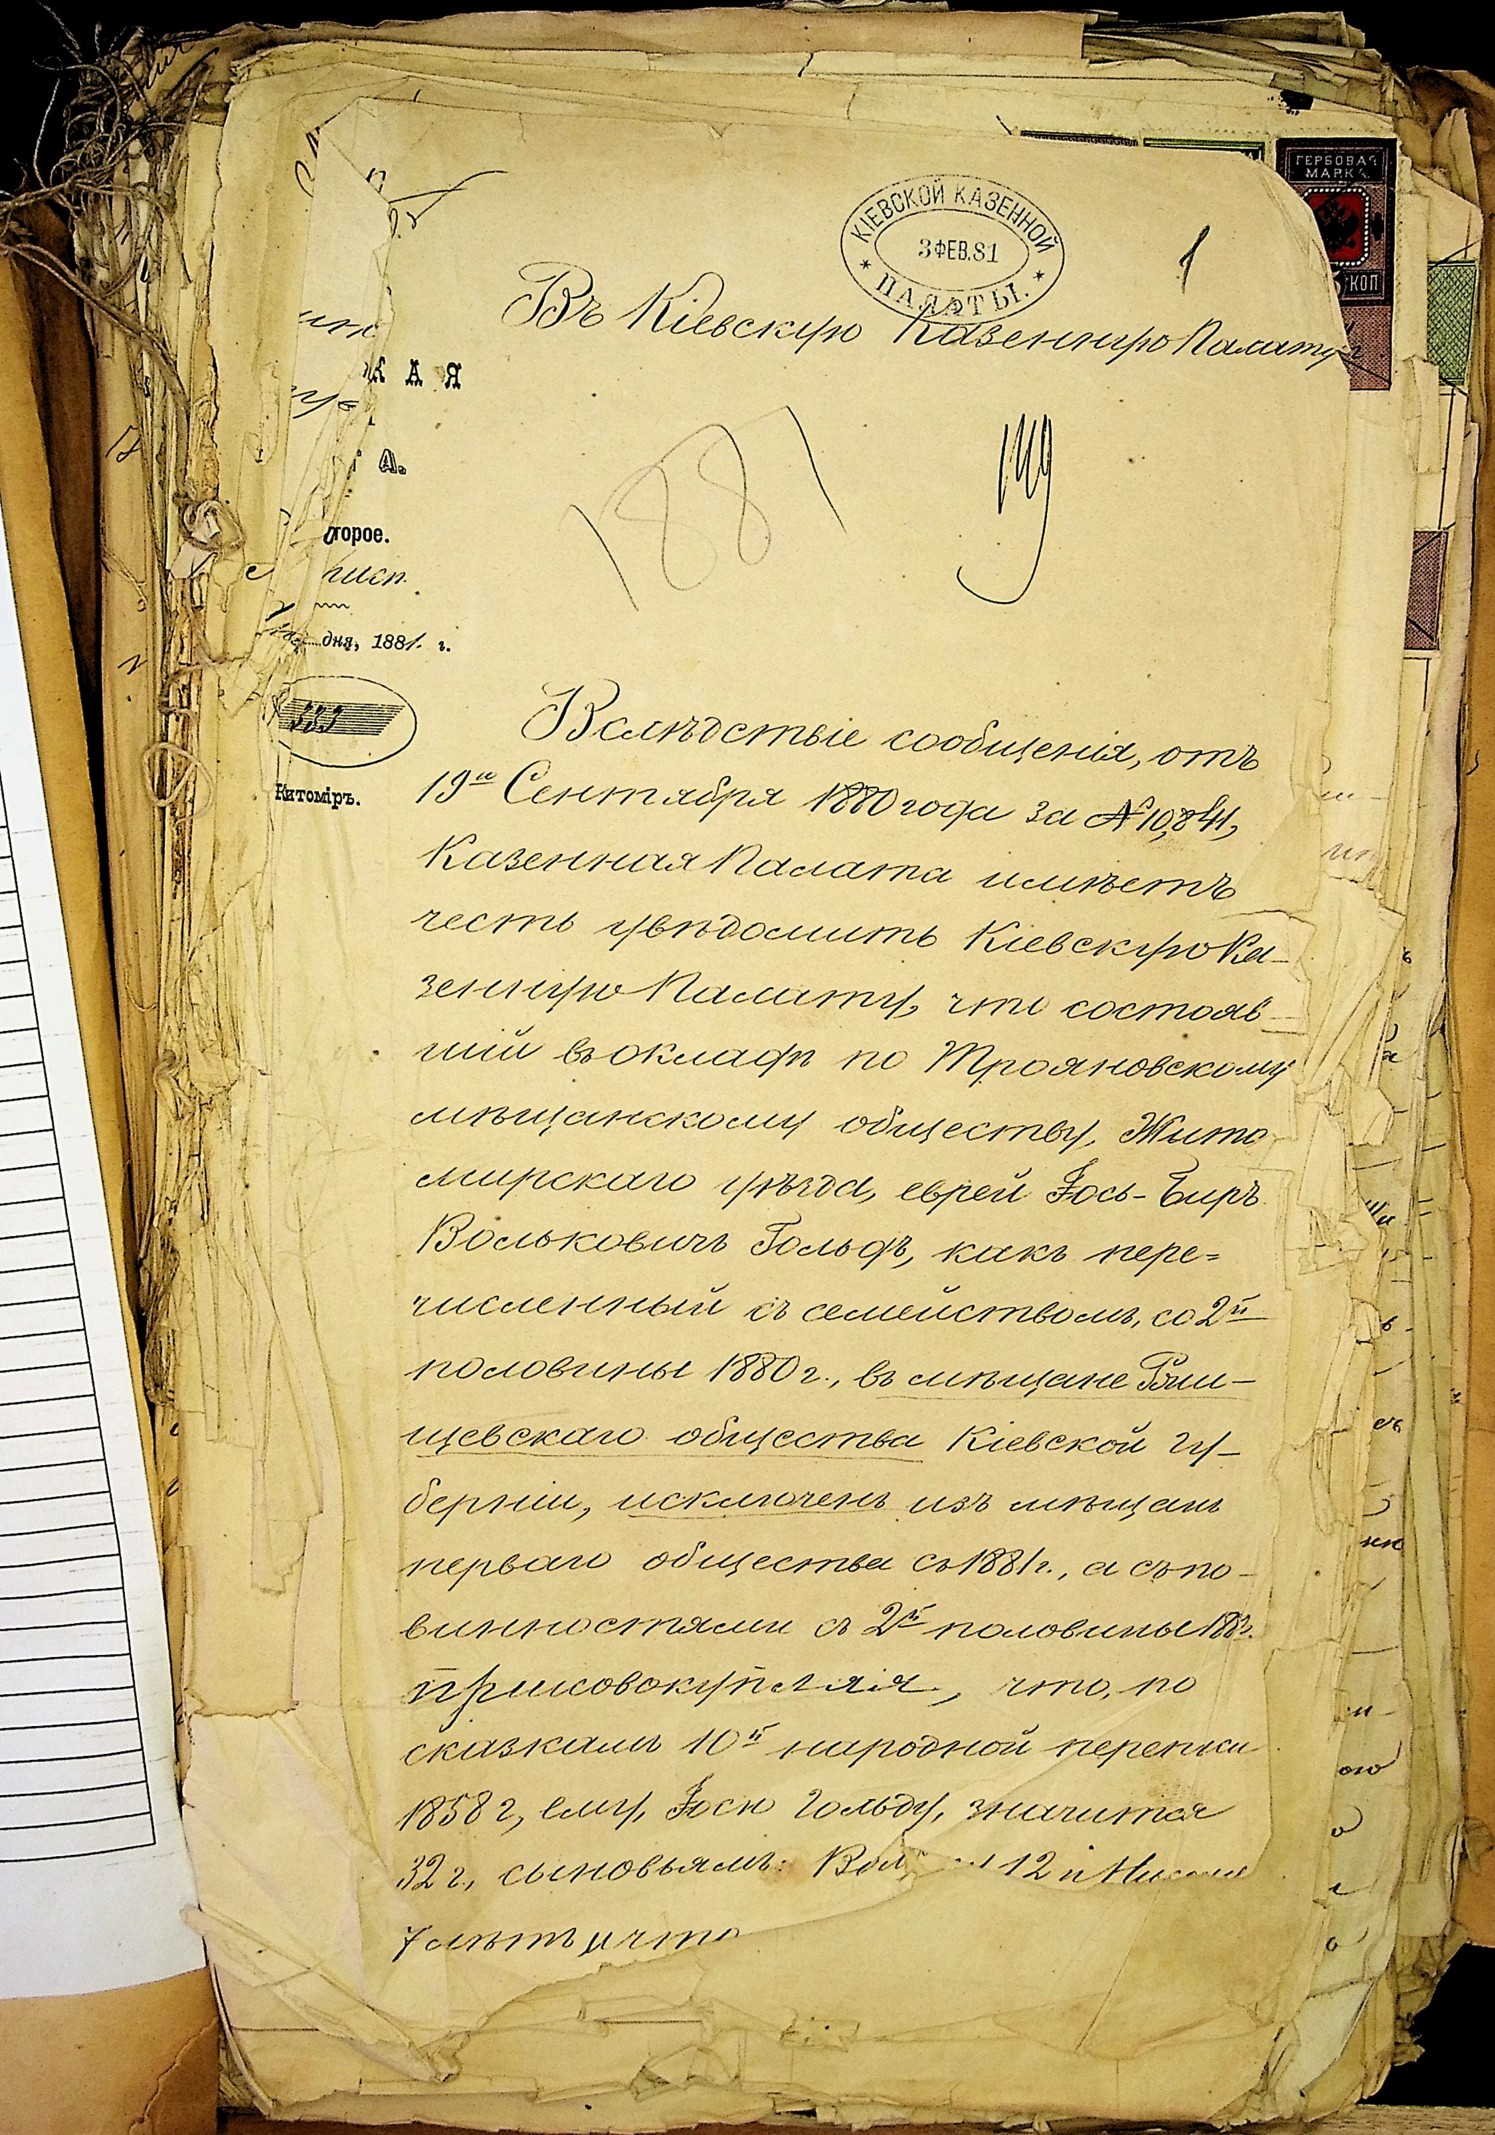 КІЕВСКОЙ КАЗЕННОЙ
3 ФЕВ. 81
ПАЛАТЫ.
ГЕРБОВАЯ
МАРКА
КОП
1
Въ Кіевскую Казенную Палату
КАЯ
А.
1881
торое.
дня, 1881. г.
333
Житоміръ.
Вслѣдствіе сообщенія, отъ
19го Сентября 1880 года за № 10,841,
Казенная Палата имѣетъ
честь увѣдомить Кіевскую Ка-
зенную Палату, что состояв-
шій въ окладѣ по Трояновскому
мѣщанскому обществу, Жито
мирскаго уѣзда, еврей Іось-Беръ
Вольковичъ Гольдъ, какъ пере=
численный съ семействомъ, со 2й
половины 1880 г., въ мѣщане Ржи-
щевскаго общества Кіевской гу-
берніи, исключенъ изъ мѣщанъ
перваго общества съ 1881 г., а съ по-
винностями съ 2й половины
присовокупляя, что, по
сказкамъ 10й народной переписи
1858 г, ему, Іосю Гольду, значится
32 г., сыновьямъ: 12 и
7 лѣтъ и что